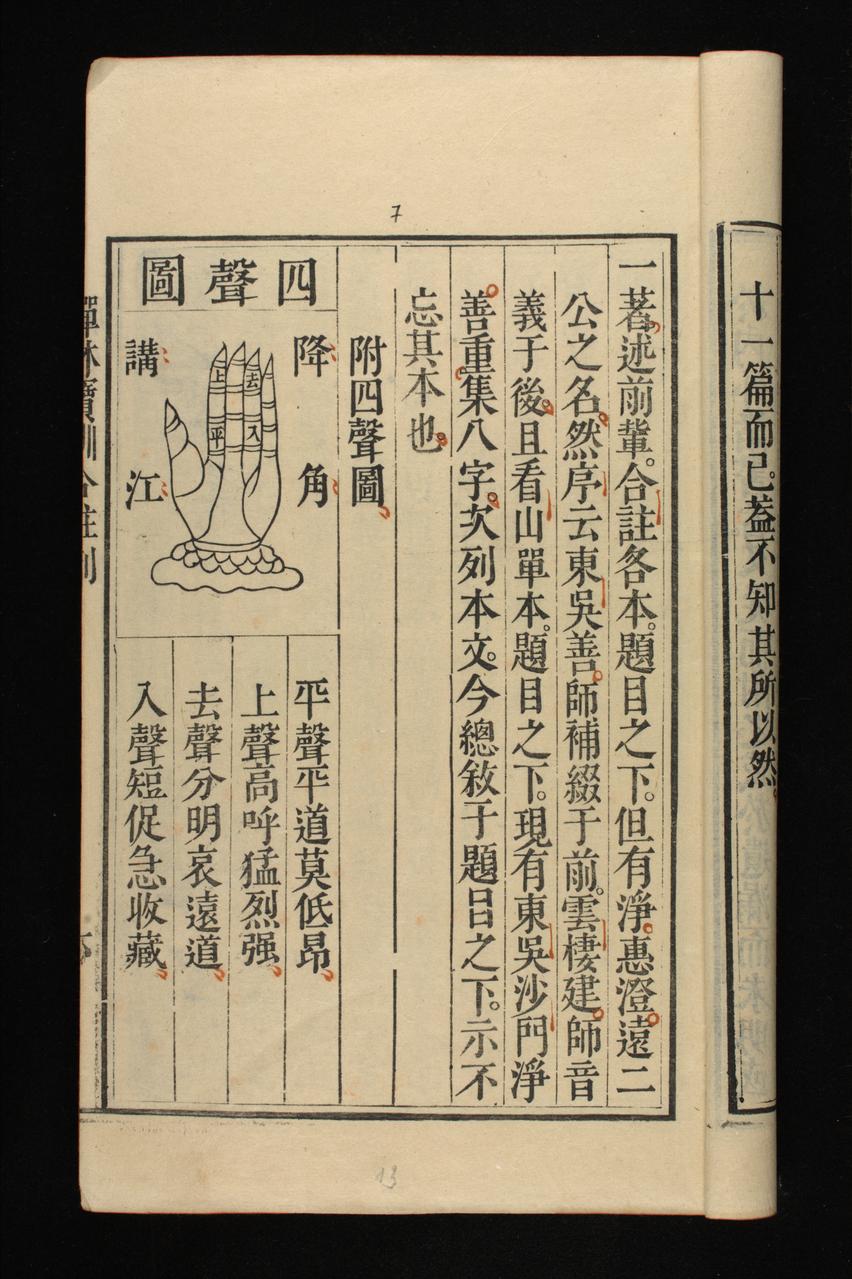 十一篇而已。葢不知其所以然。
7
一著述前輩。合註各本。題目之下。但有淨。惠澄。遠二
公之名。然序云東吳善。師補綴于前。雲棲建。師音
義于後。且看山單本。題目之下。現有東吳沙門淨
善。重集八字。次列本文。今總敘于題目之下。示不
忘其本也。
附四聲圖
四聲圖
降 角
上 平 去 入
講 江
平聲平道莫低昂
上聲高呼猛烈强
去聲分明哀遠道
入聲短促急收藏
13